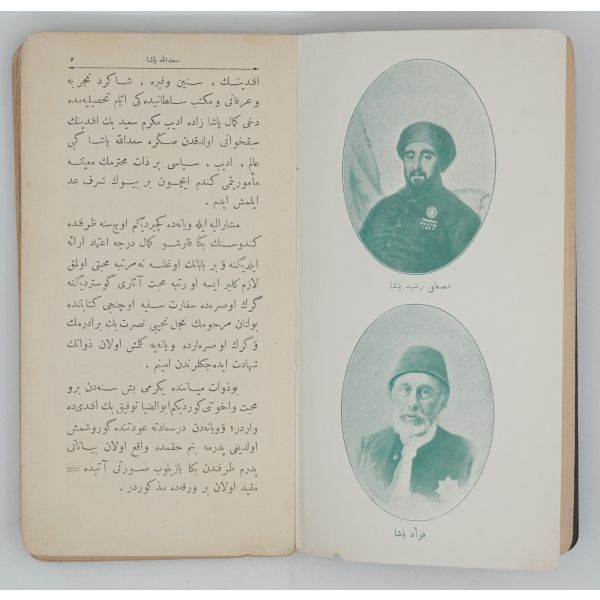 سعدالله پاشا
٥
افندینك ، سنین وفیره ، شاكرد تجربه
و عرفانی و مكتب سلطانیده كی اتمام تحصیلیمده
دخی كمال پاشا زاده ادیب مكرم سعید بك افندینك
سبقخوانی اولدقدن صكره سعدالله پاشا كبی
عالم ، ادیب ، سیاسی بر ذات محترمك معیتنه
مأموریتمی كندم ایچون بر بیوك شرف عد
ایلمش ایدم .
مشارالیه ایله ویانه‌ده كچیردیكم اوچ سنه ظرفنده
كندوسنك بكا قارشو كمال درجه اعتماد ارائه
ایلدیكنه و بر بابانك اوغلنه نه مرتبه محبتی اولمق
لازم كلیر ایسه او رتبه محبت آثاری كوستردیكنه
كرك اوصره‌ده سفارت سنیه اوچنجی كتابتنده
بولنان مرحومك نجل نجیبی نصرت بك برادرمك
و كرك اوصره‌لرده ویانه‌یه كلمش اولان ذواتك
شهادت ایده‌جكلرندن امینم .
بوذوات میاننده یكرمی بش سنه‌دن برو
محبت و اخوتنی كوردیكم ابوالضیا توفیق بك افندی‌ده
واردر؛ ویانه‌دن درسعادته عودتنده كوروشمش
اولدیغی پدرمه بنم حقمده واقع اولان بیاناتی
پدرم طرفندن بكا یازیلوب صورتی آتیده
مقید اولان بر ورقه‌ده مذكوردر .
مصطفی رشید پاشا
فوأد پاشا